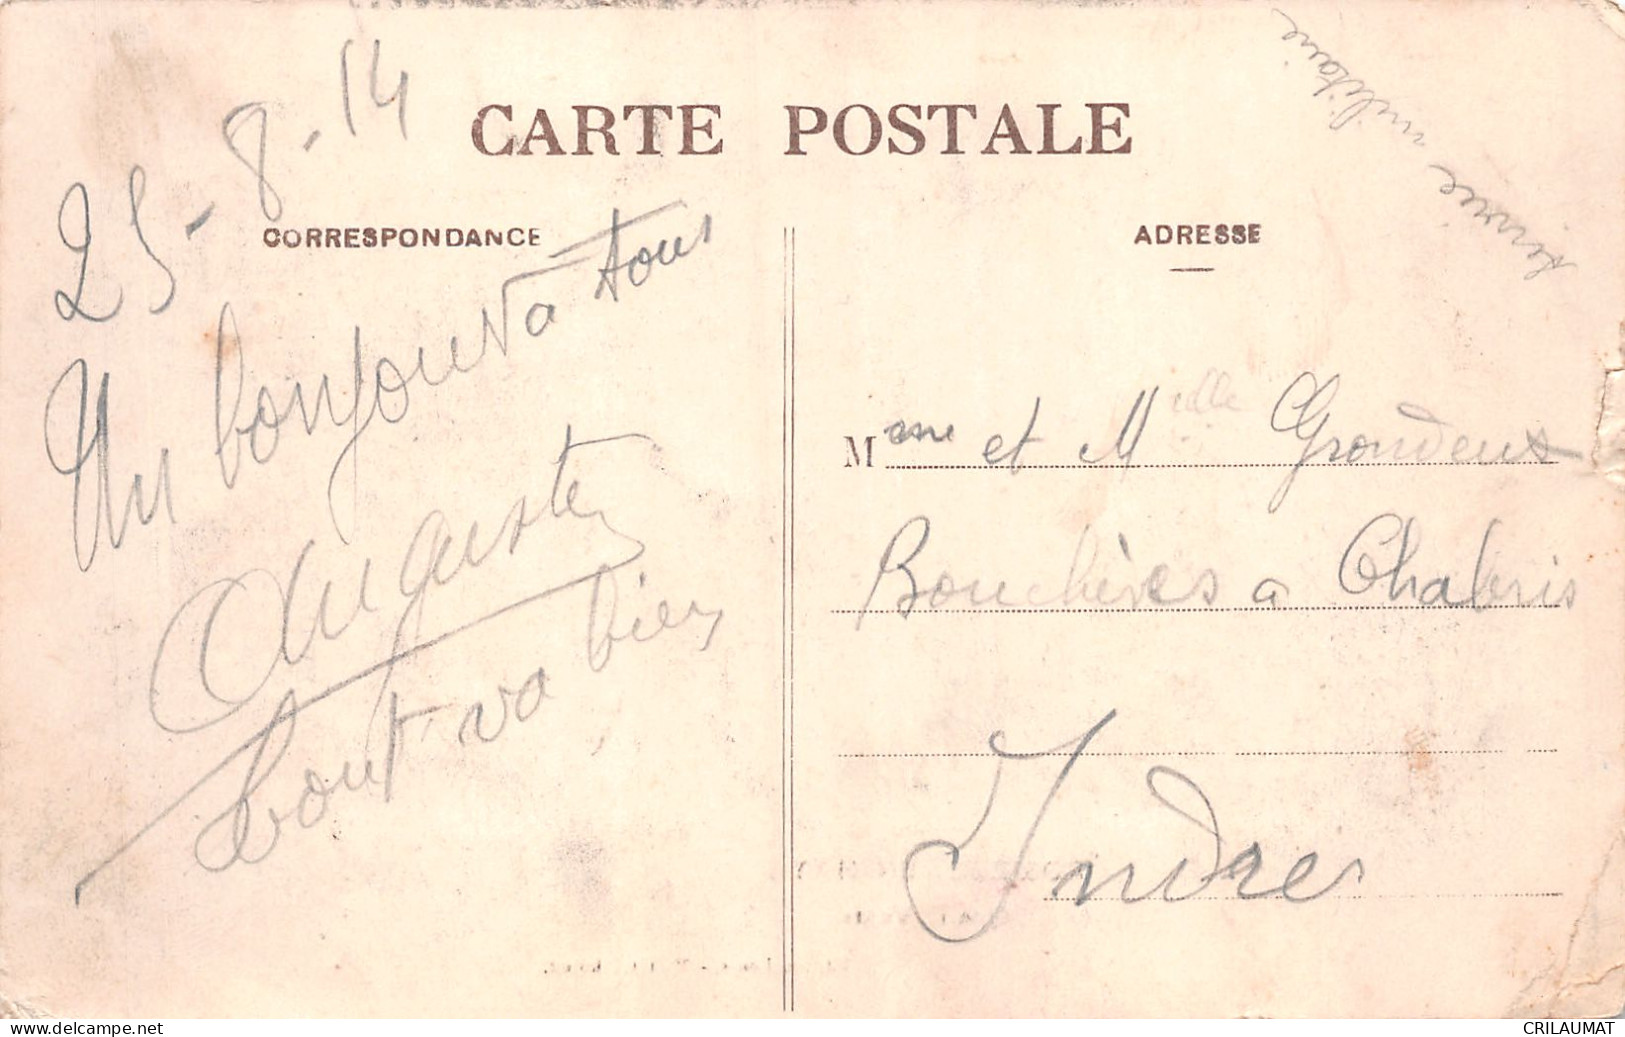 CARTE POSTALE
service militaire
CORRESPONDANCE
ADRESSE
25-8-14
Un bonjour à tous
Auguste
tout va bien
Mme et Melle
Bouchères a Chabris
Indre
www.delcampe.net
CRILAUMAT